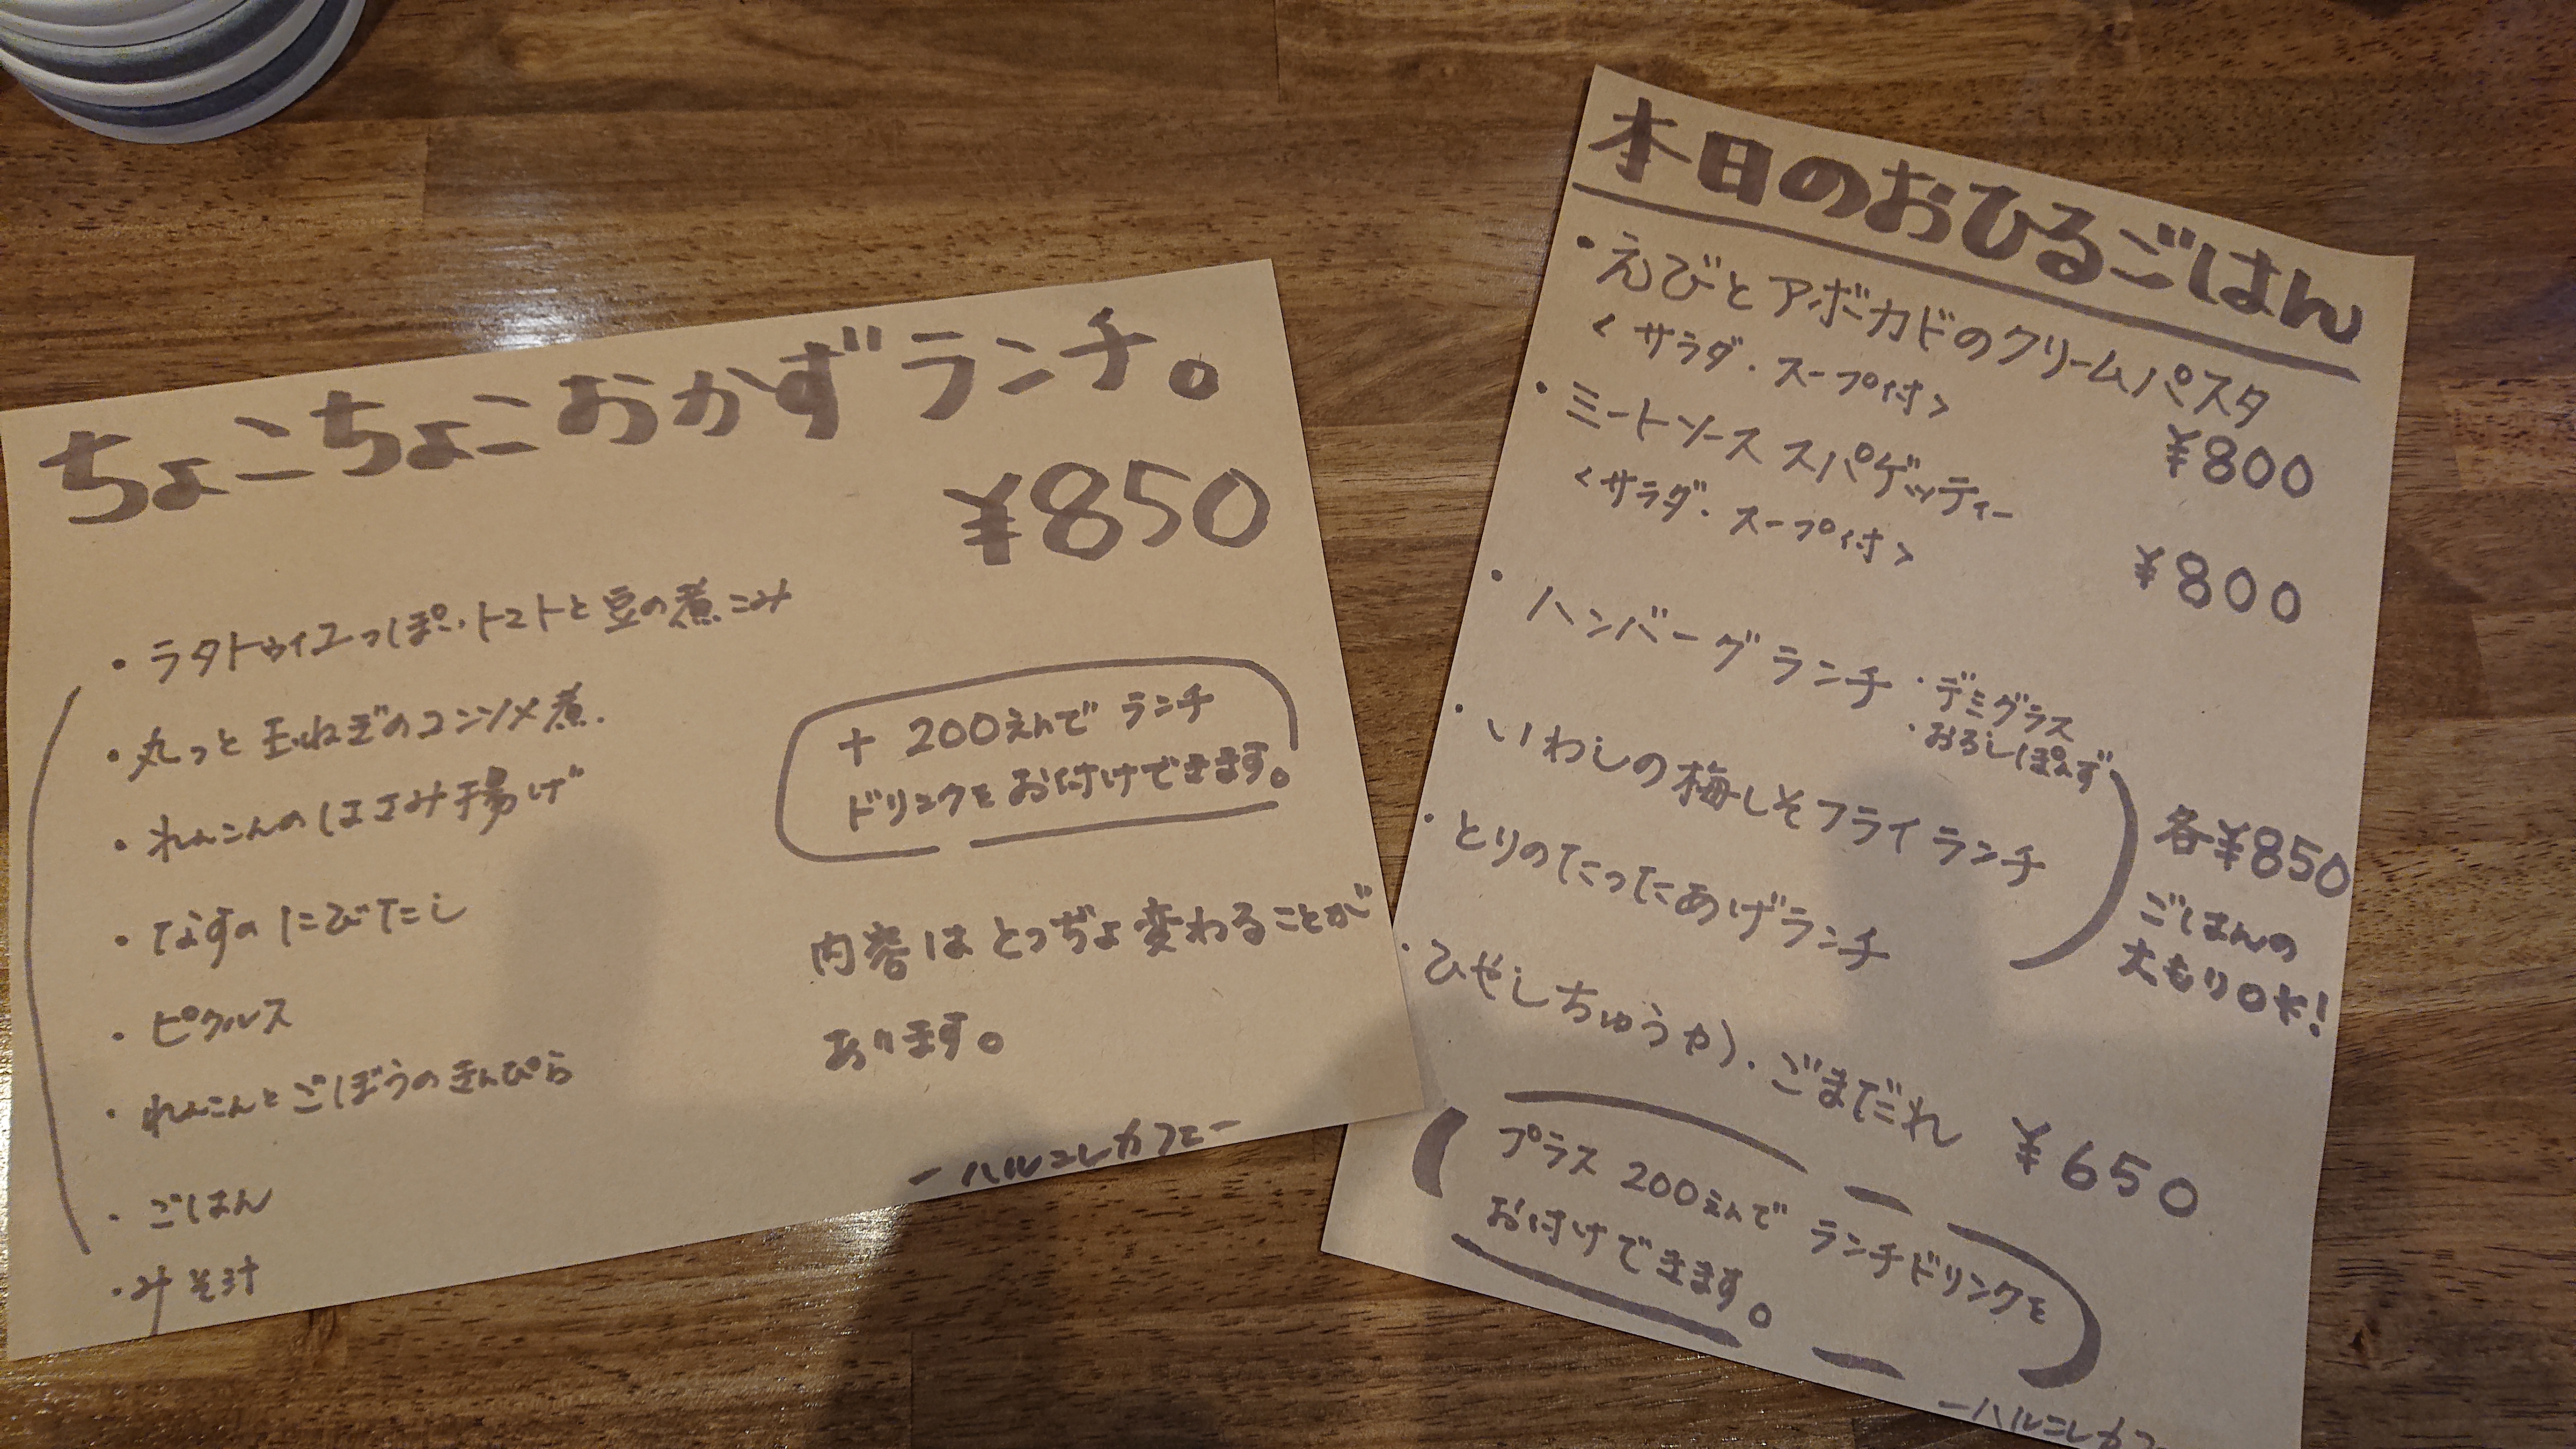 ちょこちょこおかずランチ。
¥850
・ラタトゥイユっぽい・トマトと豆の煮こみ
・丸っと玉ねぎのコンソメ煮.
・れんこんのはさみ揚げ
・なすのにびたし
・ピクルス
・れんこんとごぼうのきんぴら
・ごはん
・みそ汁
+ 200えんで ランチ
ドリンクをお付けできます。
内容は とっぢょ変わることが
あります。
ーハルコレカフェー
本日のおひるごはん
・えびとアボカドのクリームパスタ
<サラダ・スープ付>
¥800
・ミートソース スパゲッティー
<サラダ・スープ付>
¥800
・ハンバーグランチ ・デミグラス
・おろしぽんず
・いわしの梅しそフライランチ
・とりのたったあげランチ
各¥850
ごはんの
大もりOK!
・ひやしちゅうか・ごまだれ ¥650
プラス 200えんで ランチドリンクを
お付けできます。
ーハルコレカフ